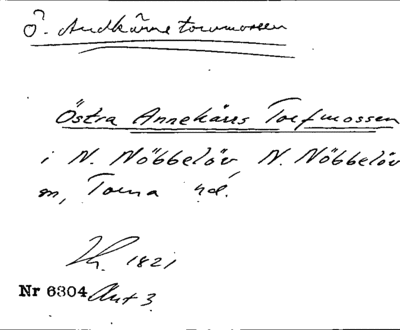 Ö. Andkärrs torvmossen
Östra Annekärrs Torfmossen
i N. Nöbbelöv N. Nöbbelöv
sn, Torna hd.
1821
Nr 6304 Akt 3